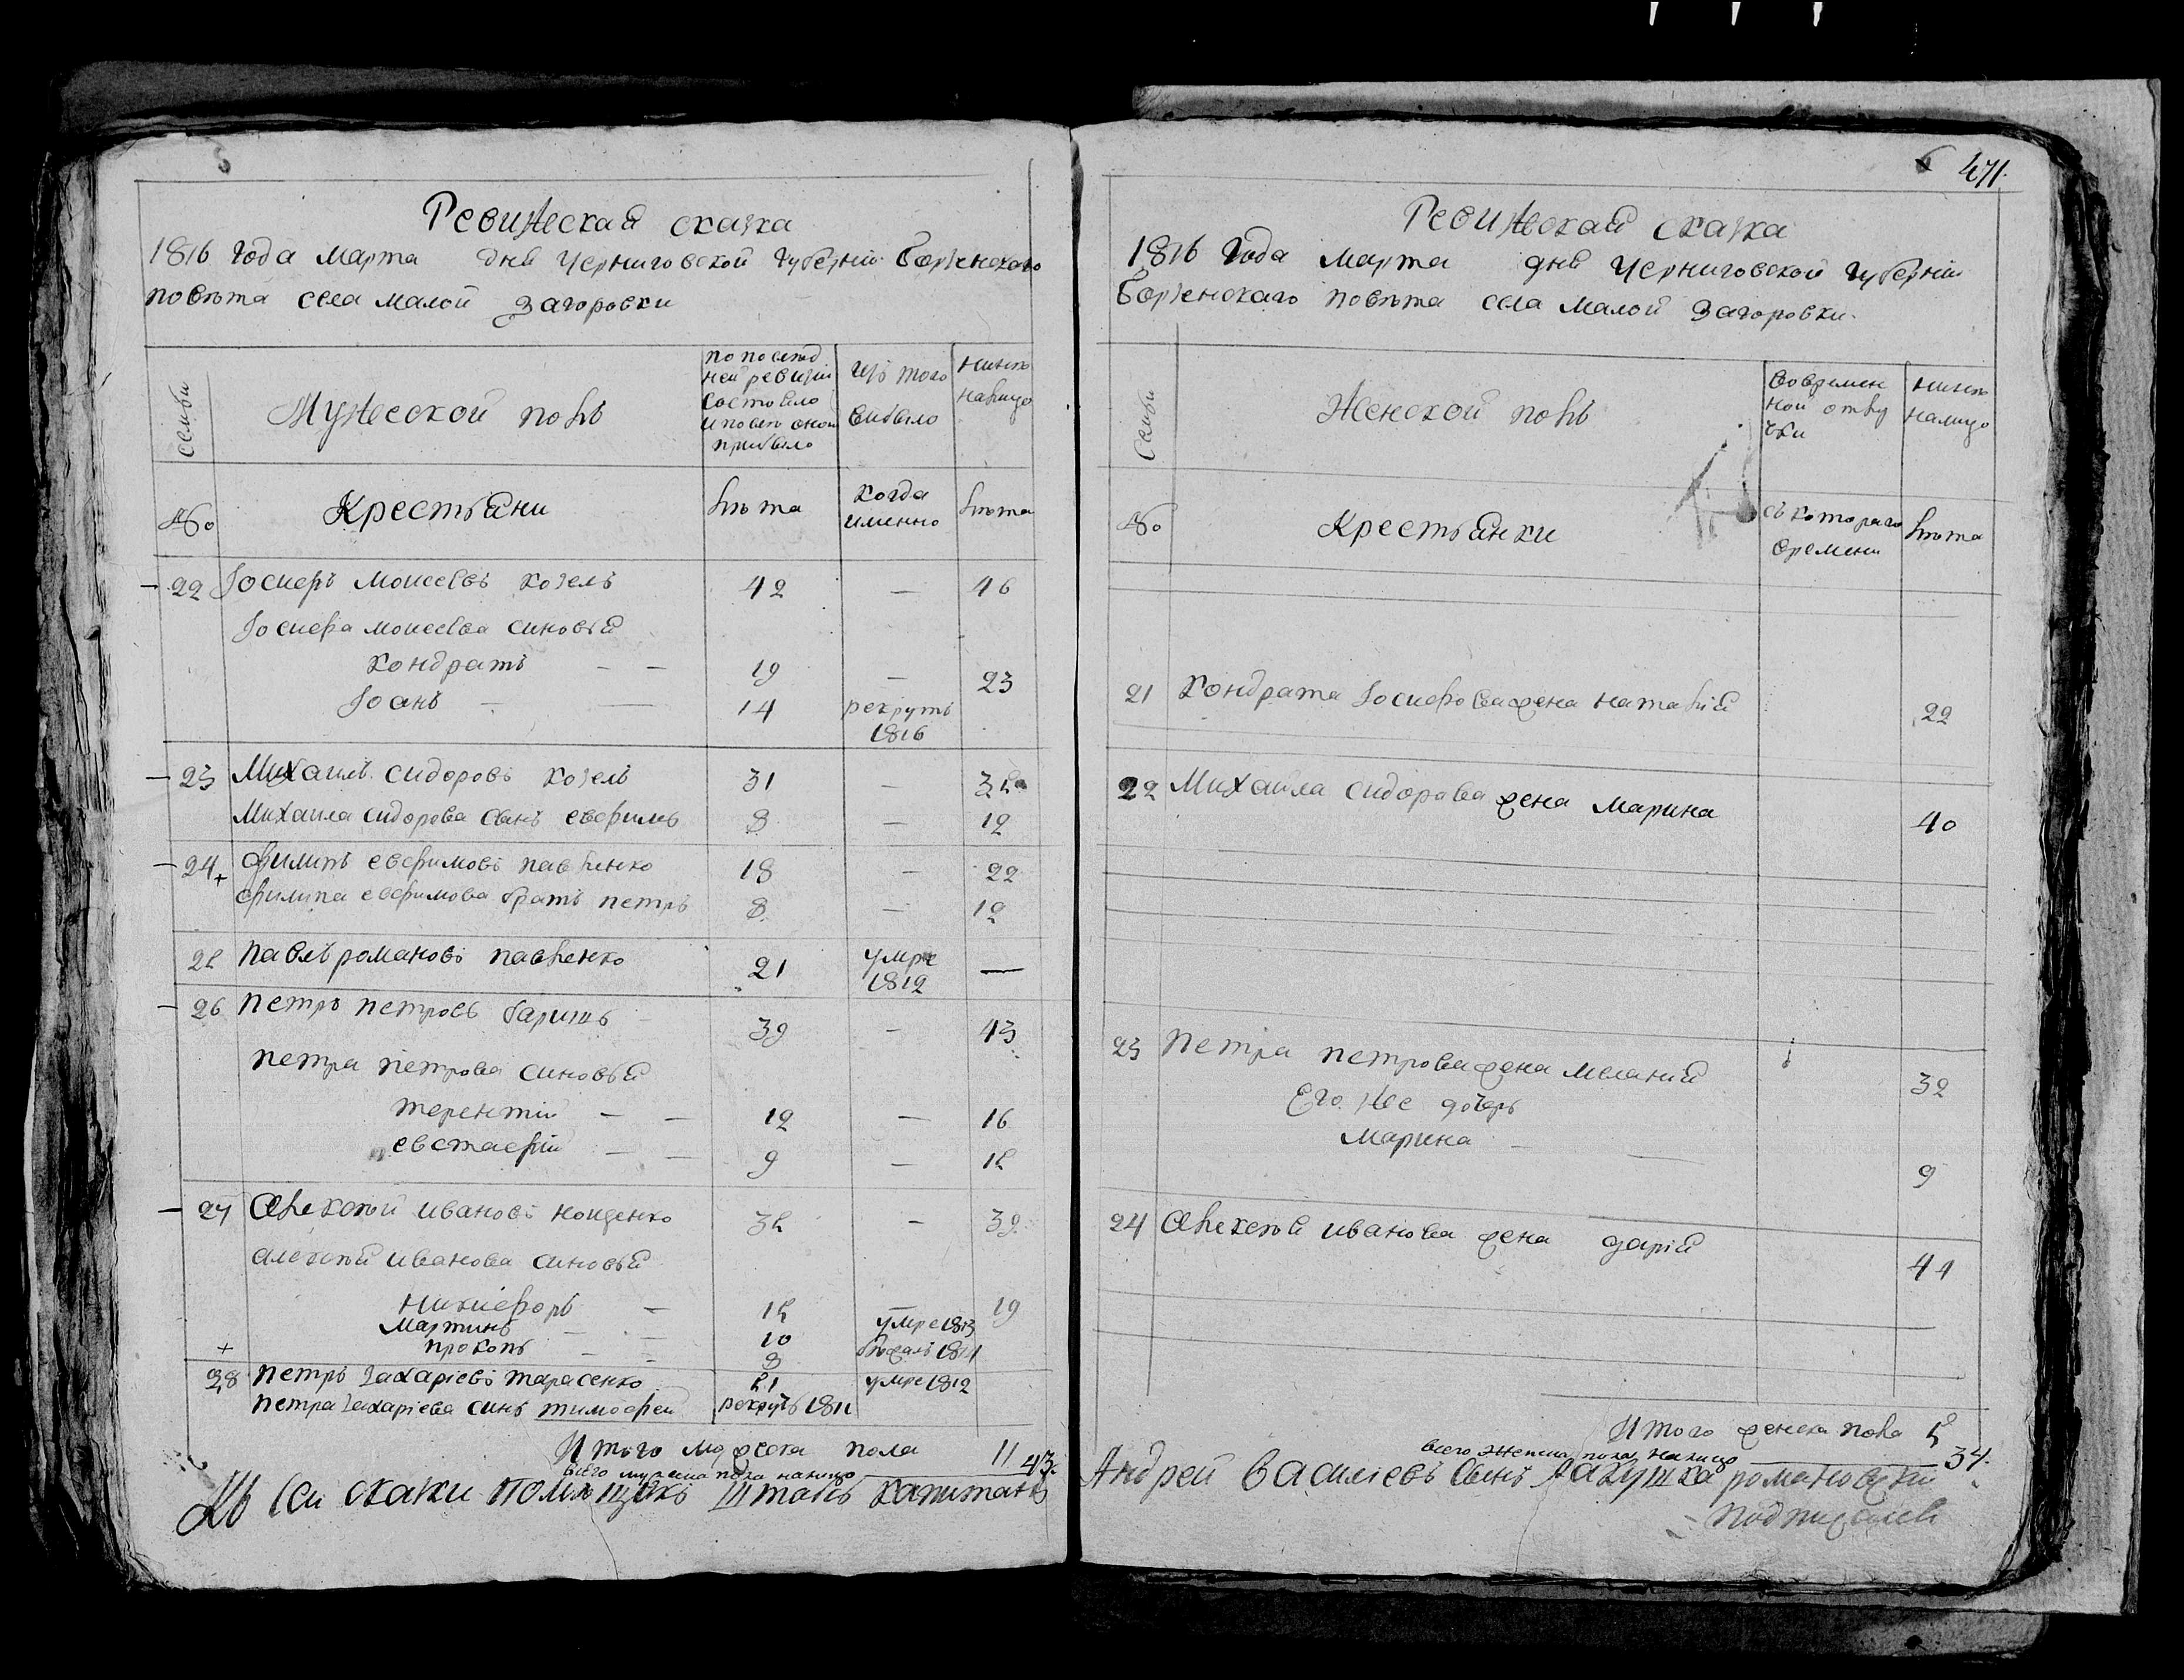 Ревижская сказка
1816 года марта дня Черниговской губерніи Борзенского
повѣта села малой Загоровки
Семьи
Мужеской полъ
по послѣд
ней ревизіи
состояло
и послѣ оной
прибыло
изъ того
выбыло
нынѣ
налицо
№
Крестьяни
лѣта
когда
именно
лѣта
22 Іосифъ Моисеевъ Козелъ 42 — 46
Іосифа Моисеева синовья
Кондратъ — — 19 — 23
Іоанъ — — 14 рекрутъ
1816
23 Михаилъ Сидоровъ Козелъ 31 — 35
Михаила Сидорова сынъ Евфимъ 8 — 12
24 Филипъ Евфимовъ Павленко 18 — 22
Филипа Евфимова братъ Петръ 8 — 12
25 Павлъ Романовъ Павленко 21 умре
1812 —
26 Петръ Петровъ Баришъ 39 — 43
Петра Петрова синовья
Терентій — — 12 — 16
Евстафій — — 9 — 15
27 Алексѣй Ивановъ Нощенко 35 — 39
Алексѣя Иванова синовья
Никифоръ — 15 19
Мартинъ — — 10 умре 1813
Прокопъ — — 8 бѣжалъ 1811
28 Петръ Захаріевъ Тарасенко 51 умре 1812
Петра Захаріева синъ Тимофей рекрутъ 1811
Итого мужеска пола 11
всего мужеска пола налицо 43
Къ сей скаски помѣщикъ Штабсъ капитанъ
6 471.
Ревижская сказка
1816 года марта дня Черниговской губерніи
Борзенскаго повѣта села малой Загоровки.
Семьи
Женской полъ
Во времен
ной отлу
чки
нынѣ
налицо
№
Крестьянки
съ котораго
времени
лѣта
21 Кондрата Іосифова жена Наталія 22
22 Михаила Сидорава жена Марина 40
23 Петра Петрова жена Меланія 32
Его же дочерь
Марина — — 9
24 Алексѣя Иванова жена Дарія 41
Итого женска пола 5
всего женска пола налицо 34.
Андрей Василіевъ сынъ Лакушка романовскій